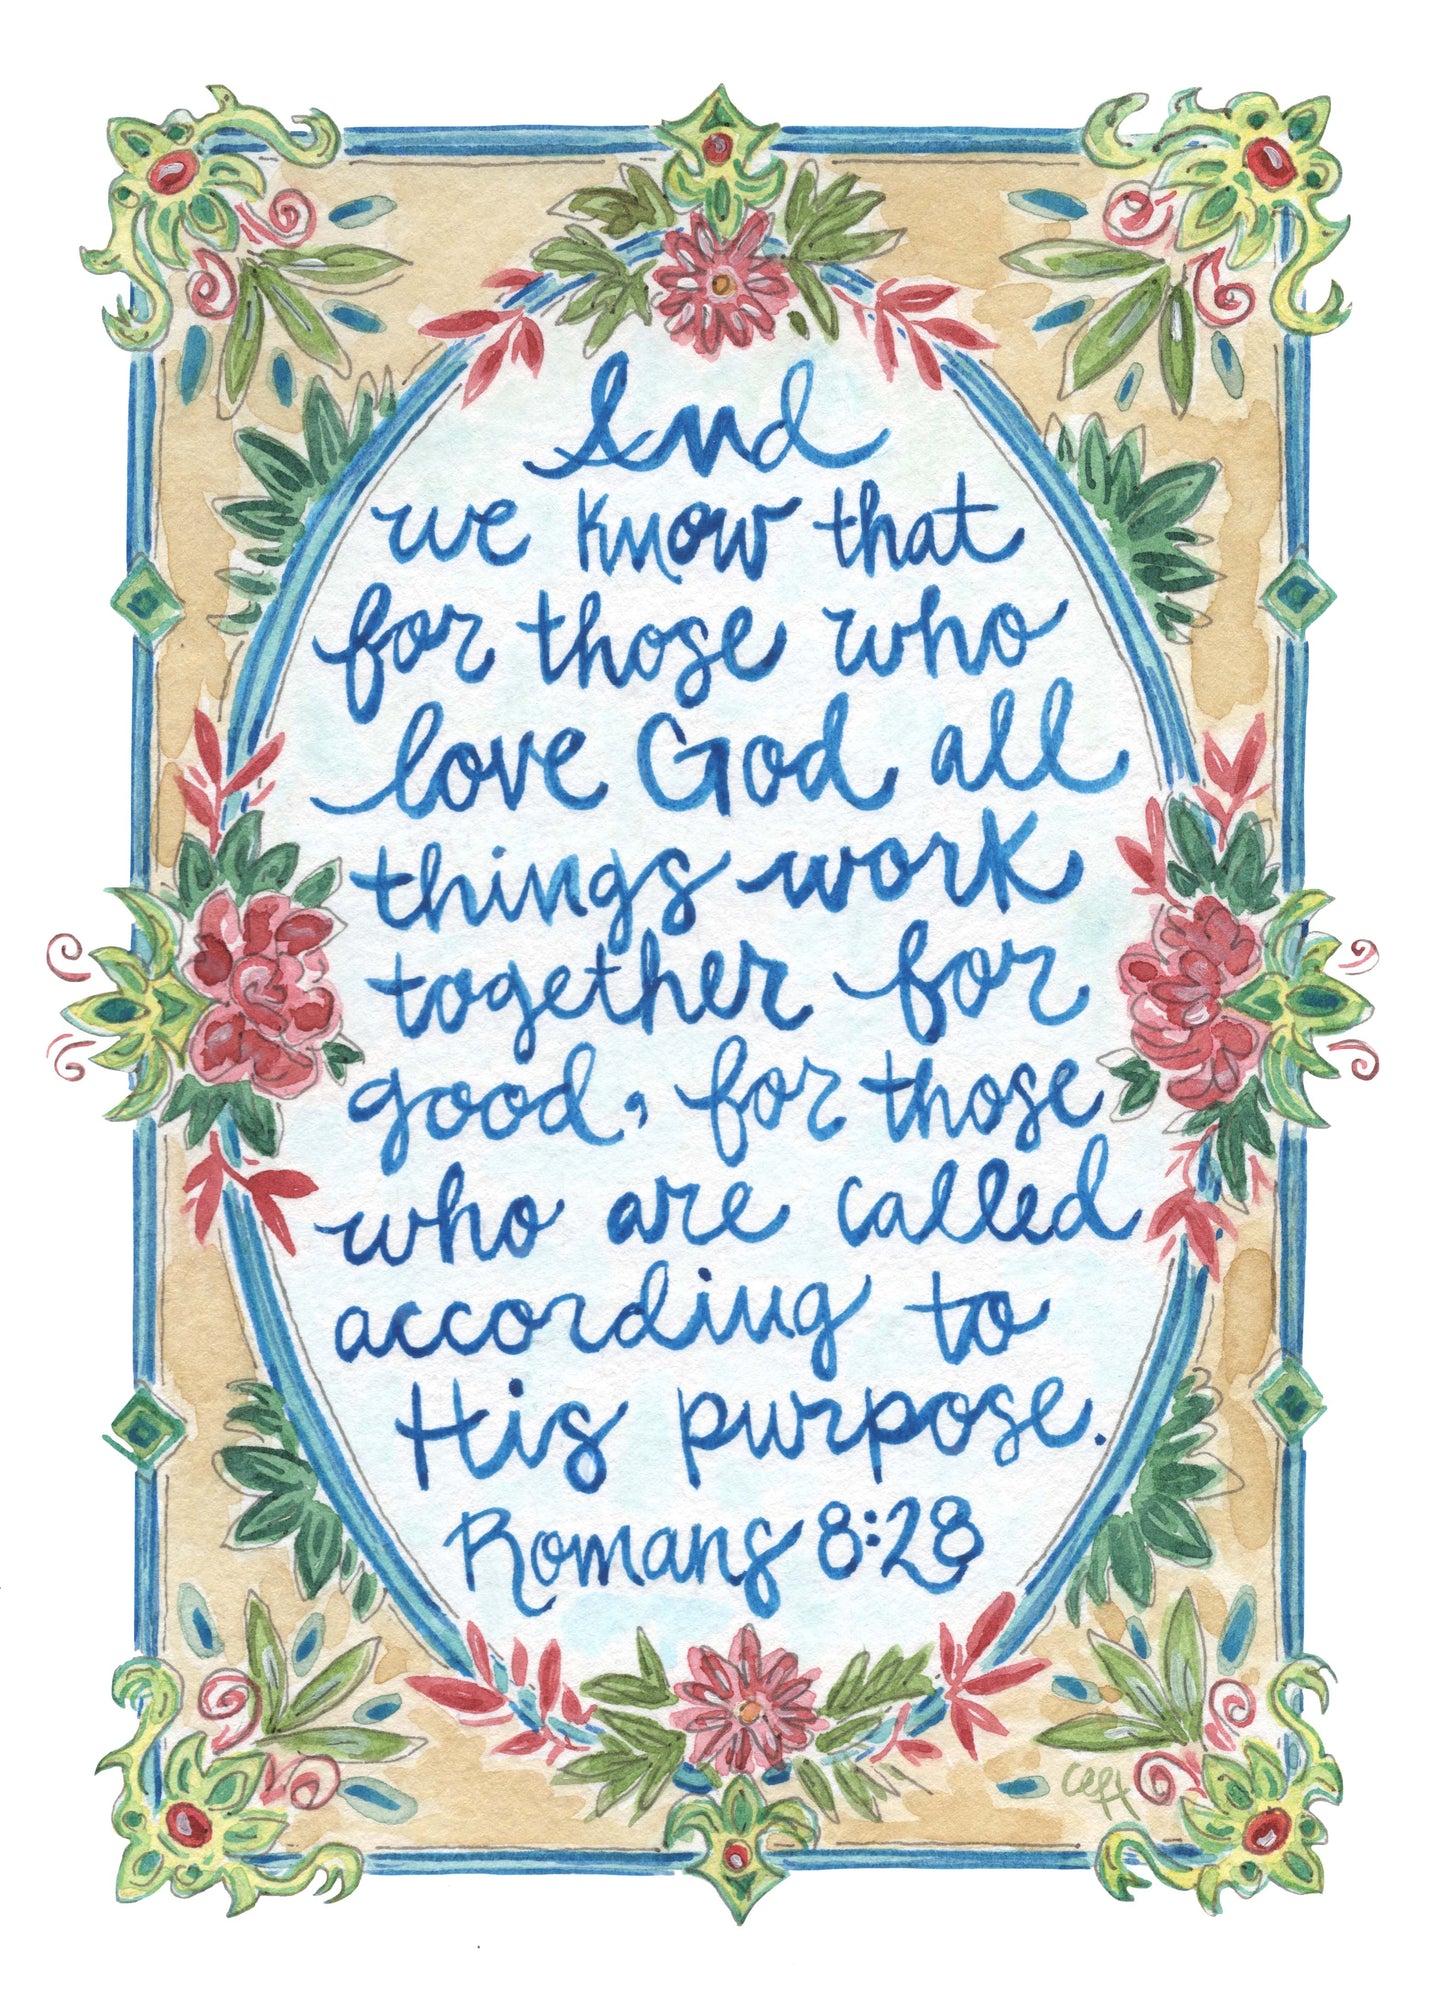 And
we know that
for those who
love God all
things work
together for
good, for those
who are called
according to
His purpose.
Romans 8:28